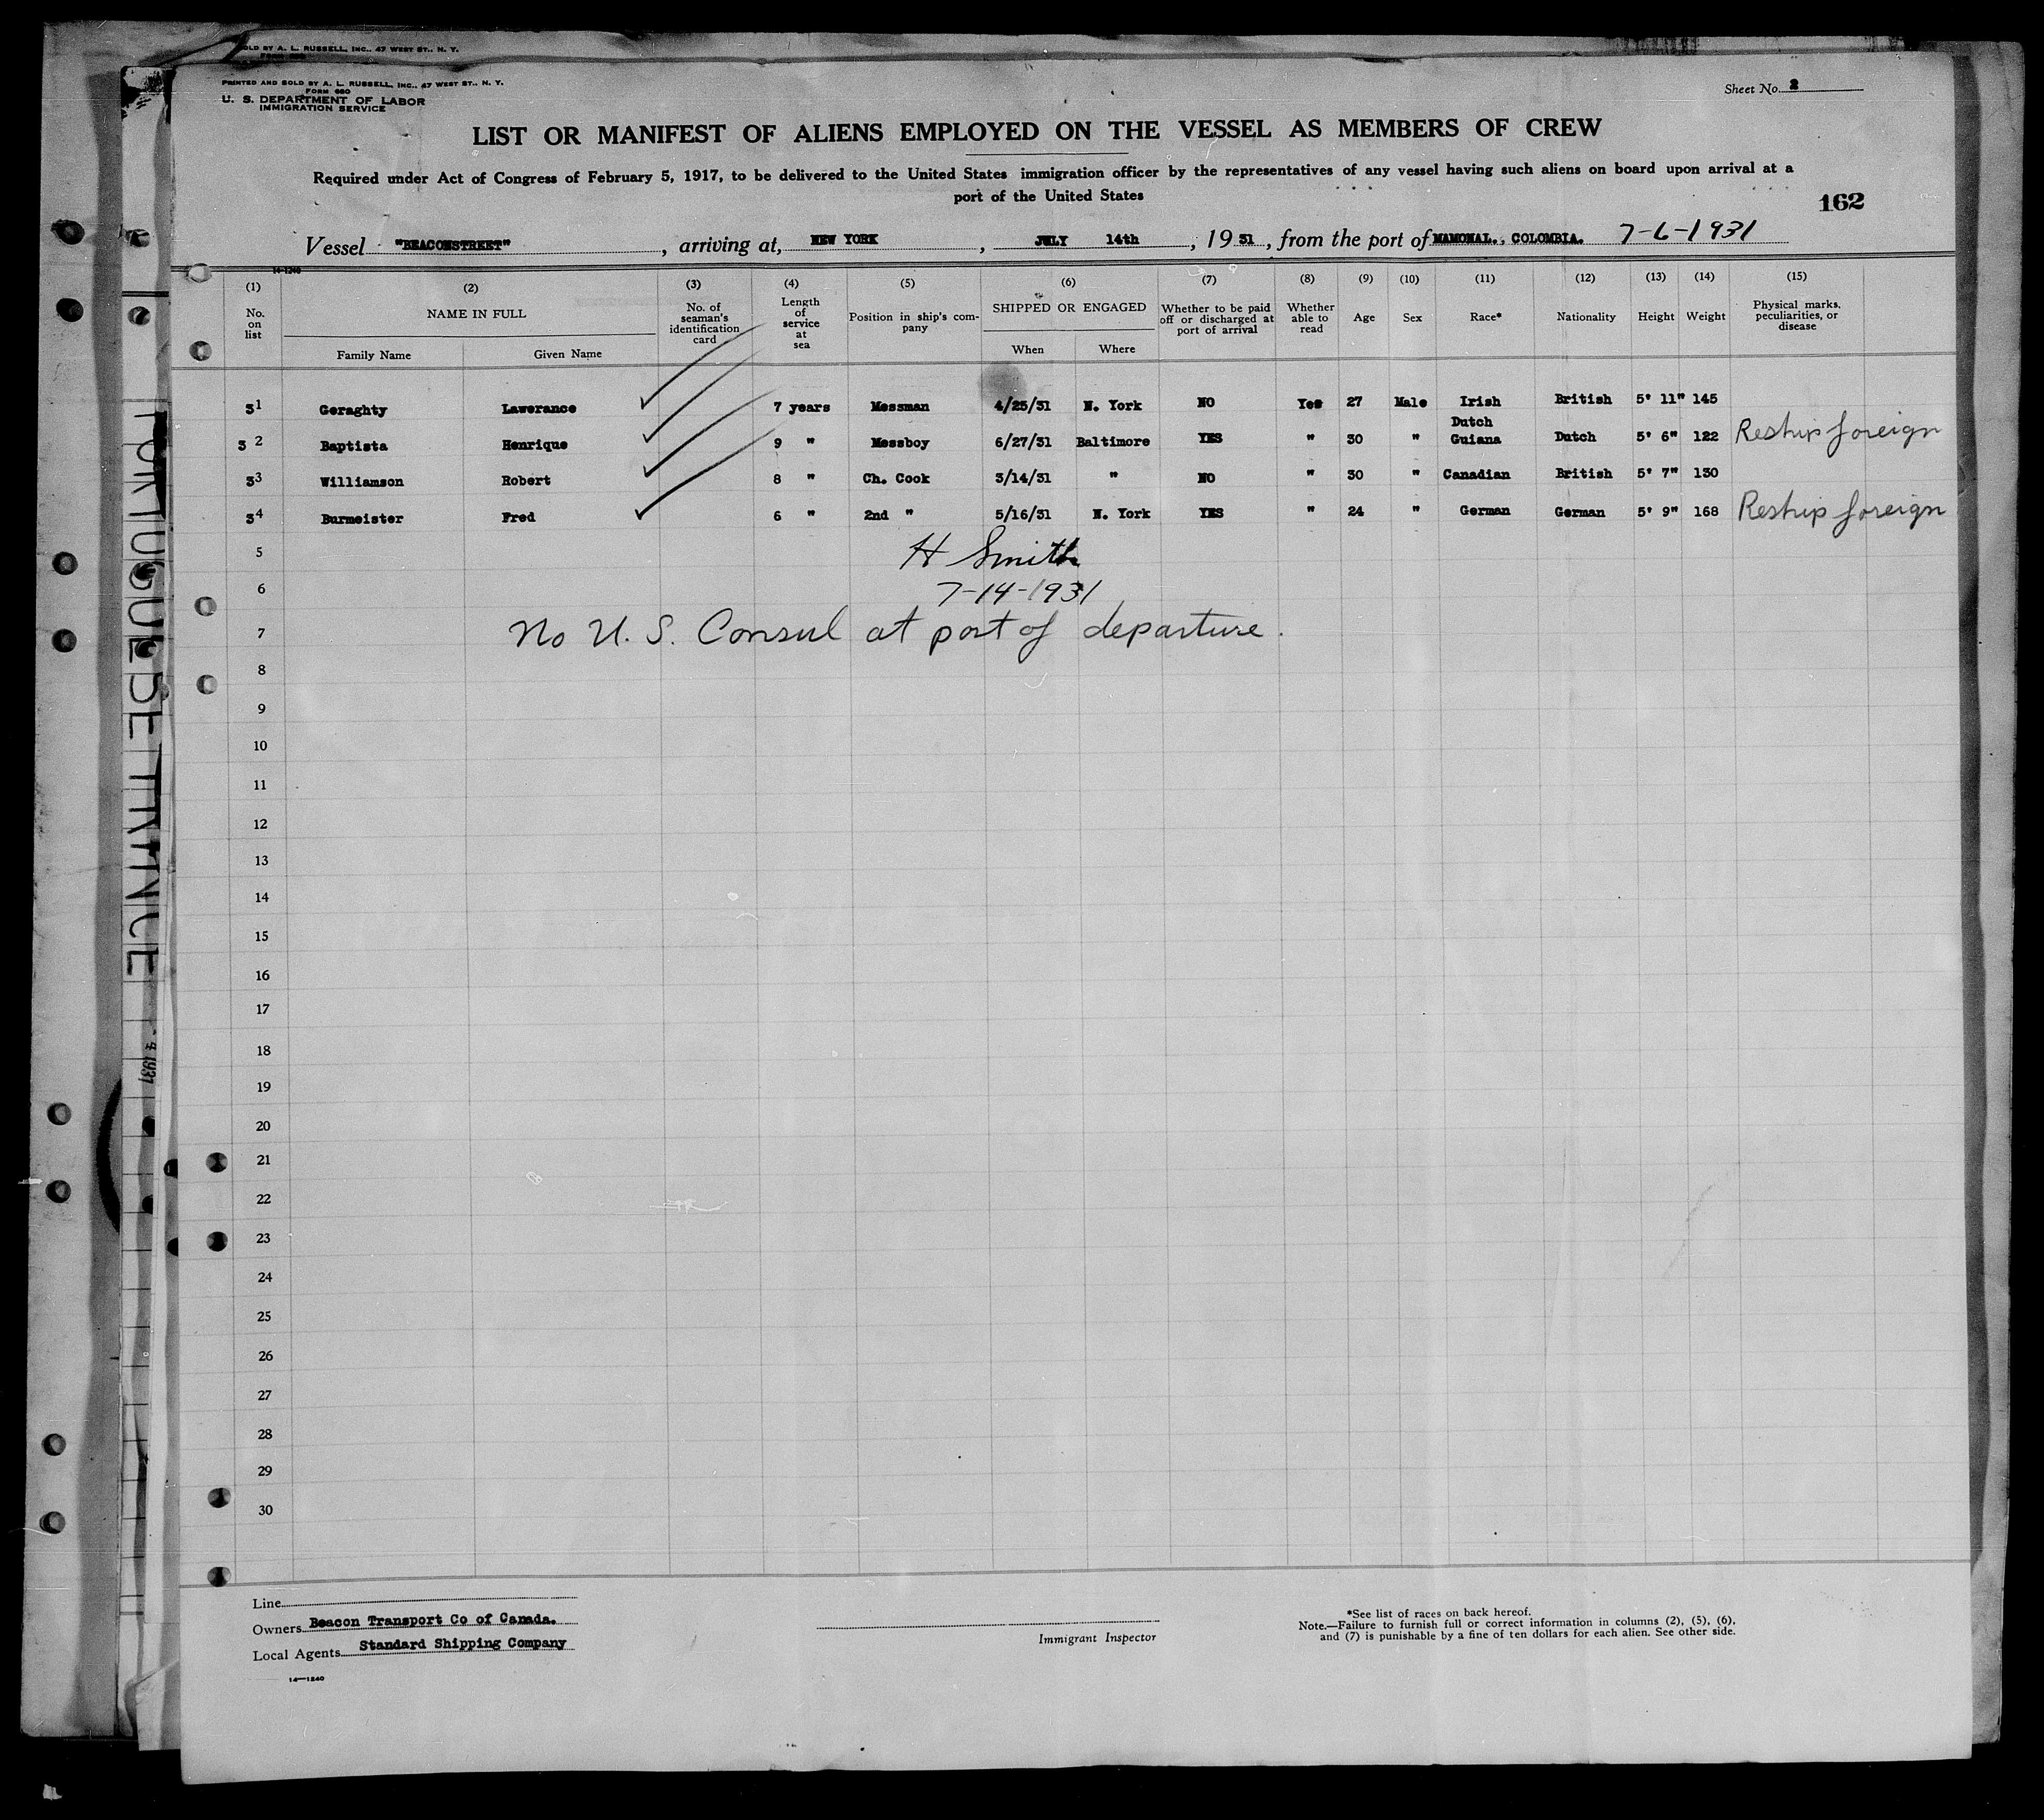 OLD BY A. L. RUSSELL, INC., 47 WEST ST., N. Y.
PRINTED AND SOLD BY A. L. RUSSELL, INC., 47 WEST ST., N. Y.
FORM 680
U. S. DEPARTMENT OF LABOR
IMMIGRATION SERVICE
Sheet No. 2
LIST OR MANIFEST OF ALIENS EMPLOYED ON THE VESSEL AS MEMBERS OF CREW
Required under Act of Congress of February 5, 1917, to be delivered to the United States immigration officer by the representatives of any vessel having such aliens on board upon arrival at a
port of the United States
162
Vessel "BEACONSTREET", arriving at, NEW YORK, JULY 14th, 1931, from the port of MAMONAL., COLOMBIA. 7-6-1931
14-1240
(1) (2) (3) (4) (5) (6) (7) (8) (9) (10) (11) (12) (13) (14) (15)
No. on list NAME IN FULL Family Name Given Name No. of seaman's identification card Length of service at sea Position in ship's company SHIPPED OR ENGAGED When Where Whether to be paid off or discharged at port of arrival Whether able to read Age Sex Race* Nationality Height Weight Physical marks, peculiarities, or disease
31 Geraghty Lawerance 7 years Messman 4/25/31 N. York NO Yes 27 Male Irish British 5' 11" 145
32 Baptista Henrique 9 " Messboy 6/27/31 Baltimore YES " 30 " Dutch Guiana Dutch 5' 6" 122 Reship foreign
33 Williamson Robert 8 " Ch. Cook 3/14/31 " NO " 30 " Canadian British 5' 7" 130
34 Burmeister Fred 6 " 2nd " 5/16/31 N. York YES " 24 " German German 5' 9" 168 Reship foreign
5 H Smith
6 7-14-1931
7 No U. S. Consul at port of departure.
8
9
10
11
12
13
14
15
16
17
18
19
20
21
22
23
24
25
26
27
28
29
30
Line
Owners Beacon Transport Co of Canada.
Local Agents Standard Shipping Company
14—1240
Immigrant Inspector
*See list of races on back hereof.
Note.—Failure to furnish full or correct information in columns (2), (5), (6),
and (7) is punishable by a fine of ten dollars for each alien. See other side.